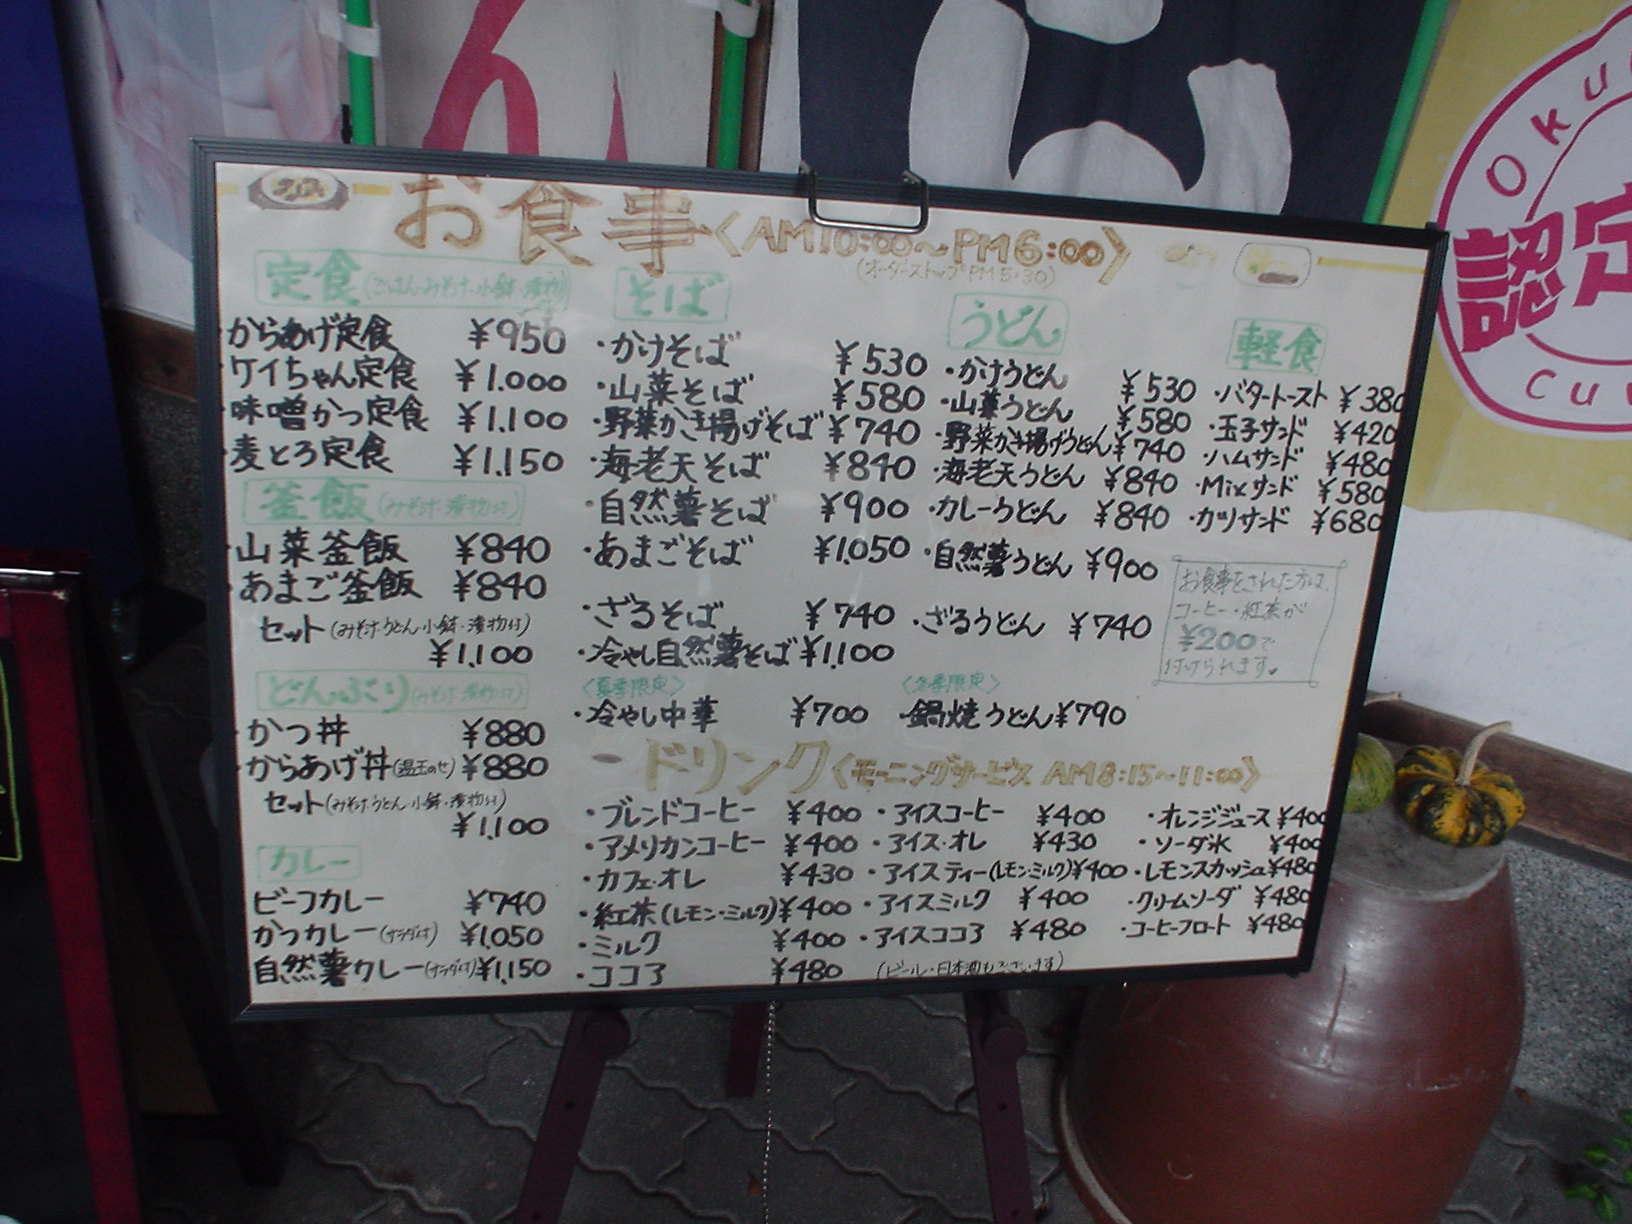 お食事〈AM10:00〜PM6:00〉
(オーダーストップPM5:30)
定食(ごはん・みそ汁・小鉢・漬物付)
からあげ定食 ¥950
ケイちゃん定食 ¥1.000
味噌かつ定食 ¥1.100
麦とろ定食 ¥1.150
釜飯(みそ汁・漬物付)
山菜釜飯 ¥840
あまご釜飯 ¥840
セット(みそ汁・うどん・小鉢・漬物付)
¥1.100
どんぶり(みそ汁・漬物付)
かつ丼 ¥880
からあげ丼(温玉のせ) ¥880
セット(みそ汁・うどん・小鉢・漬物付)
¥1.100
カレー
ビーフカレー ¥740
かつカレー(サラダ付) ¥1.050
自然薯カレー(サラダ付) ¥1.150
そば
・かけそば ¥530
・山菜そば ¥580
・野菜かき揚げそば ¥740
・海老天そば ¥840
・自然薯そば ¥900
・あまごそば ¥1.050
・ざるそば ¥740
・冷やし自然薯そば ¥1.100
〈夏季限定〉
・冷やし中華 ¥700
うどん
・かけうどん ¥530
・山菜うどん ¥580
・野菜かき揚げうどん ¥740
・海老天うどん ¥840
・カレーうどん ¥840
・自然薯うどん ¥900
・ざるうどん ¥740
〈冬季限定〉
・鍋焼うどん ¥790
軽食
・バタートースト ¥380
・玉子サンド ¥420
・ハムサンド ¥480
・Mixサンド ¥580
・カツサンド ¥680
お食事をされた方は、
コーヒー・紅茶が
¥200で
付けられます。
ドリンク〈モーニングサービス AM8:15〜11:00〉
・ブレンドコーヒー ¥400
・アメリカンコーヒー ¥400
・カフェ・オレ ¥430
・紅茶(レモン・ミルク) ¥400
・ミルク ¥400
・ココア ¥480
・アイスコーヒー ¥400
・アイス・オレ ¥430
・アイスティー(レモン・ミルク) ¥400
・アイスミルク ¥400
・アイスココア ¥480
(ビール・日本酒もございます)
・オレンジジュース ¥400
・ソーダ水 ¥400
・レモンスカッシュ ¥480
・クリームソーダ ¥480
・コーヒーフロート ¥480
Oku
認定
cu